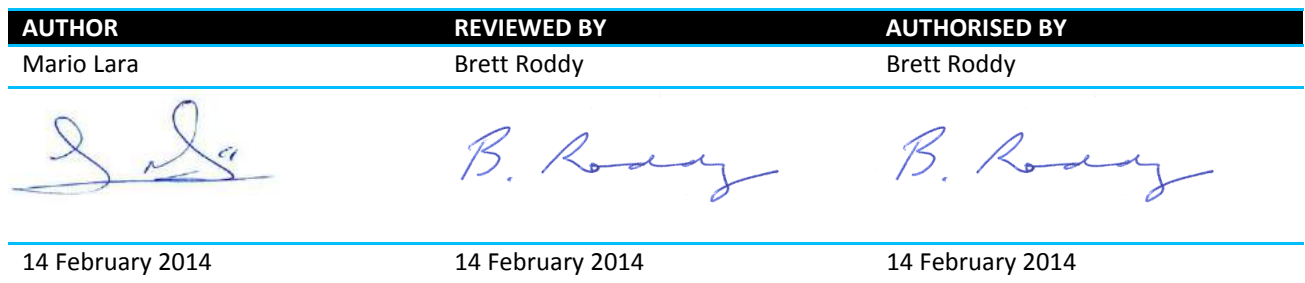 AUTHOR REVIEWED BY AUTHORISED BY
Mario Lara Brett Roddy Brett Roddy
B. Roddy B. Roddy
14 February 2014 14 February 2014 14 February 2014